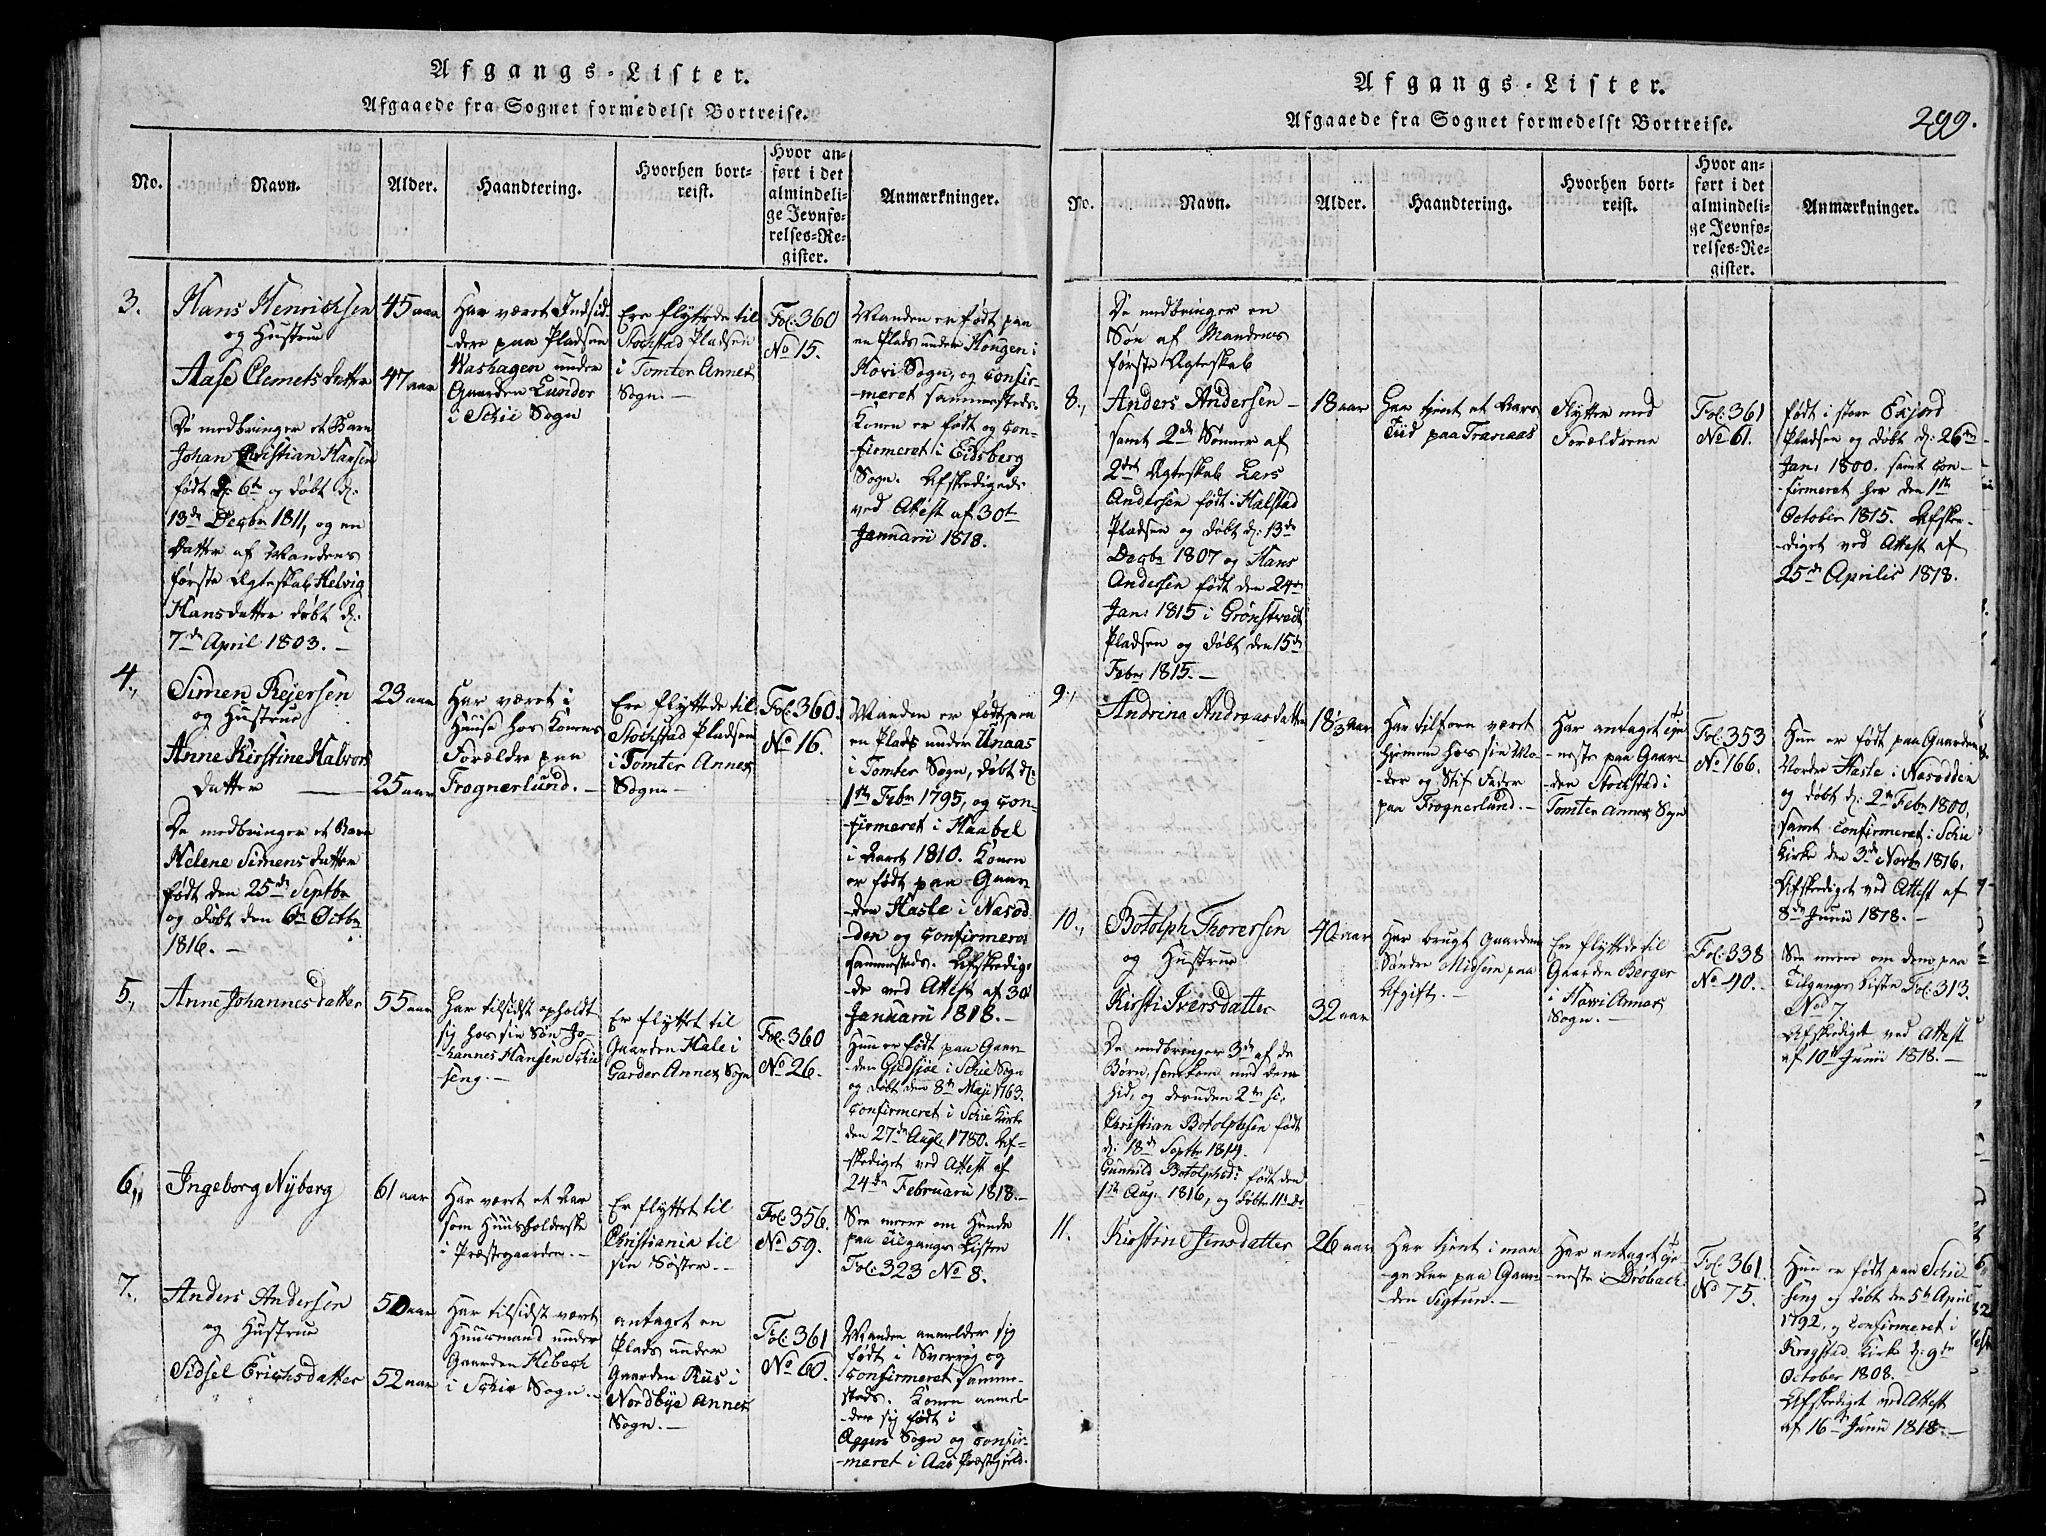 Afgangs-Lister.
Afgaaede fra Sognet formedelst Bortreise.
No.
Navn.
Alder.
Haandtering.
Hvorhen bort-
reist.
Hvor an-
ført i det
almindeli-
ge Jevnfø-
relses-Re-
gister.
Anmærkninger.
3.
Hans Henrichsen
og Hustrue
Aase Clemets datter
De medbringer et Barn
Johan Christian Hansen
født d: 6te og døbt d:
13de Decbr 1811, og en
Datter af Mandens
første Ægteskab Helvig
Hansdatter døbt d:
7de April 1803. —
45 aar
47 aar
Har været Indsid-
dere paa Pladsen
under
Gaarden Lunder
i Schie Sogn
Ere flyttede til
Stochstad Pladsen
i Tomter Annex
Sogn. —
Fol: 360
No 15.
Manden er født paa
en Plads under Hougen i
Sogn, og confir-
meret sammesteds.
Konen er født og con-
firmeret i Eidsberg
Sogn. Afskedigede
ved Attest af 30te
Januarii 1818.
4.,
Simen Rejersen
og Hustrue
Anne Kirstine Halvors
datter
De medbringer et Barn
Helene Simens datter
født den 25de Septbr
og døbt den 6te Octbr
1816. —
23 aar
25 aar
Har været i
Huuse hos Konens
Forældre paa
Frognerlund. —
Ere flyttede til
Stochstad Pladsen
i Tomter Annex
Sogn —
Fol: 360.
No 16.
Manden er født paa
en Plads under Unaas
i Tomter Sogn, døbt d:
1ste Febr 1795, og con-
firmeret i Haabel
i Aaret 1810. Konen
er født paa Gaar-
den Hasle i Nasod-
den og confirmeret
sammesteds. Afskedige-
de ved Attest af 30
Januarii 1818. —
5.,
Anne Johannesdatter
55 aar
Har tilsidst opholdt
sig hos sin Søn Jo-
hannes Hansen Schie
seng. —
Er flyttet til
Gaarden Hale i
Garder Annex Sogn
Fol: 360
No 26.
Hun er født paa Gaar-
den Gudsjøe i Schie Sogn
og døbt den 8de Maji 1763.
confirmeret i Schie Kirke
den 27de Aug: 1780. Af-
skediget ved Attest af
24de Februarii 1818. —
6.,
Ingeborg Nyberg
61 aar
Har været et Aar
som Huusholderske
i Præstegaarden. —
Er flyttet til
Christiania til
sin Søster. —
Fol: 356.
No 59.
See mere om Hende
paa Tilgangs Listen
Fol: 323 No 8.
7.,
Anders Andersen
og Hustrue
Sidsel Erichsdatter
50 aar
52 aar
Har tilsidst været
Huusmand under
Gaarden Kebech
i Schie Sogn. —
antaget en
Plads under
Gaarden Riis i
Nordbye Annex
Sogn. —
Fol: 361
No 60.
Manden anmelder sig
født i Sverrig og
confirmeret samme-
steds. Konen anmel-
der sig født i
Aggers Sogn og confir-
meret i Aas Præstegjeld.
Afgangs-Lister.
Afgaaede fra Sognet formedelst Bortreise.
299.
No.
Navn.
Alder.
Haandtering.
Hvorhen bort-
reist.
Hvor an-
ført i det
almindeli-
ge Jevnfø-
relses-Re-
gister.
Anmærkninger.
De medbringer en
Søn af Mandens
første Ægteskab
8.,
Anders Andersen —
samt 2de Sønner af
2det Ægteskab Lars
Andersen født i Halstad
Pladsen og døbt d: 13de
Decbr 1807 og Hans
Andersen født den 24de
Jan: 1815 i
Pladsen og døbt den 15de
Febr 1815. —
18 aar
Har tjent et Aars
Tiid paa Tranaas
Flytter med
Forældrene
Fol: 361
No 61.
født i store
Pladsen og døbt d: 26de
Jan: 1800. samt con-
firmeret her den 1ste
October 1815. Afske-
diget ved Attest af
25de Aprilis 1818.
9.,
Andrina Andreasdatter
18 1/3 aar
Har tilforn været
hjemme hos sin Mo-
der og Stif Fader
paa Frognerlund. —
Har antaget tje-
neste paa Gaar-
den Stochstad i
Tomter Annex Sogn
Fol: 353
No 166.
Hun er født paa Gaarden
Nordre Hasle i Nasodden
og døbt d: 2den Febr 1800,
samt confirmeret i Schie
Kirke den 3de Novbr 1816.
Afskediget ved Attest af
8de Junii 1818. —
10.,
Botolph Thorersen
og Hustrue
Kirsti Iversdatter
De medbringer 3de af de
Børn, som kom med dem
hid, og desuden 2de
Christian Botolphsen født
d: 18de Septbr 1814.
Gunnild Botolphsd: født den
1ste Aug: 1816, og døbt 11te do
40 aar
32 aar
Har brugt Gaarden
Søndre Midsem paa
Afgift. —
Ere flyttede til
Gaarden Berger
i Annex
Sogn. —
Fol: 338
No 40.
See mere om dem paa
Tilgangs Listen Fol: 313.
No 7.
Afskediget ved Attest
af 10de Junii 1818. —
11.
Kirstine Jensdatter
26 aar
Har tjent i man-
ge Aar paa Gaar-
den Sigtun. —
Har antaget tje-
neste i Drøbach.
Fol: 361.
No 75.
Hun er født paa Schie-
seng og døbt den 5te April
1792, og confirmeret i
Krogstad Kirke d: 9de
October 1808.
Afskediget ved Attest
af 16de Junii 1818. —